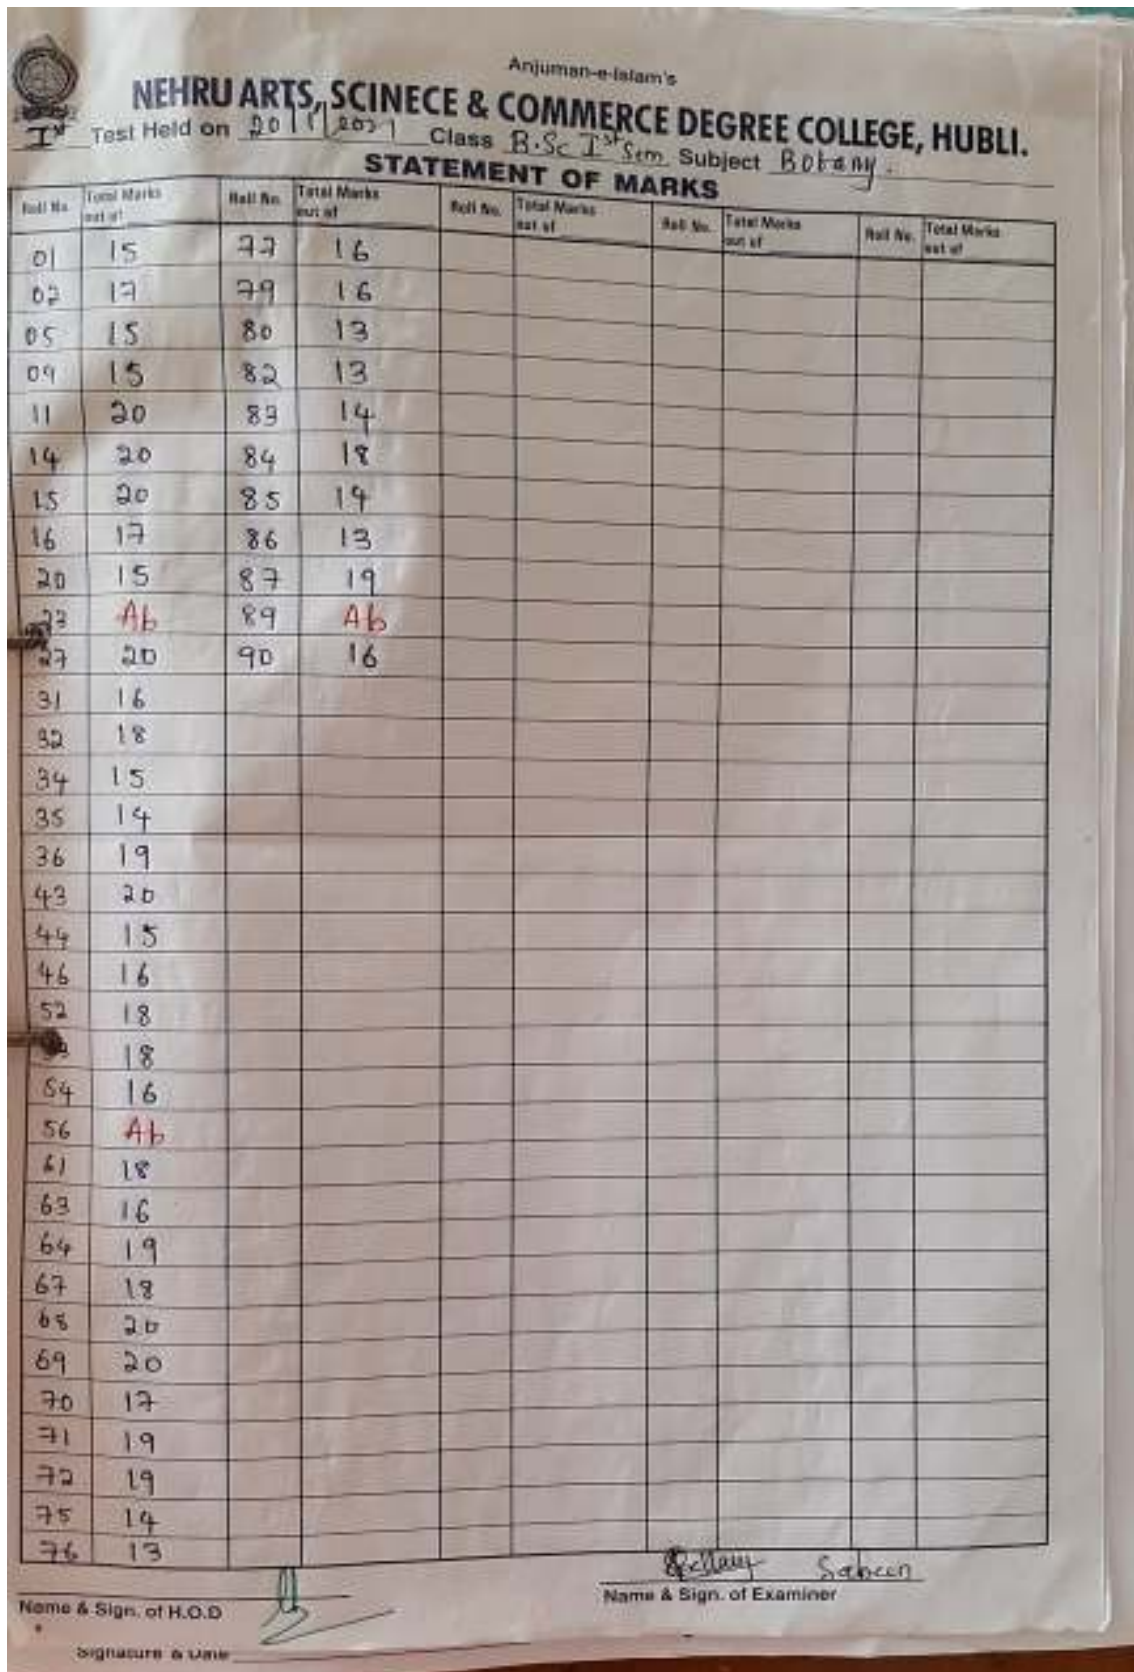 Anjuman-e-Islam's
NEHRU ARTS, SCINECE & COMMERCE DEGREE COLLEGE, HUBLI.
Ist Test Held on Class B.Sc Ist Sem Subject Botany.
STATEMENT OF MARKS
Roll No. Total Marks out of Roll No. Total Marks out of Roll No. Total Marks out of Roll No. Total Marks out of Roll No. Total Marks out of
01 15 77 16
02 17 79 16
05 15 80 13
09 15 82 13
11 20 83 14
14 20 84 18
15 20 85 14
16 17 86 13
20 15 87 19
Ab 89 Ab
27 20 90 16
31 16
32 18
34 15
35 14
36 19
43 20
44 15
46 16
52 18
18
54 16
56 Ab
61 18
63 16
64 19
67 18
68 20
69 20
70 17
71 19
72 19
75 14
76 13
Sabeen
Name & Sign. of H.O.D Name & Sign. of Examiner
Signature & Date